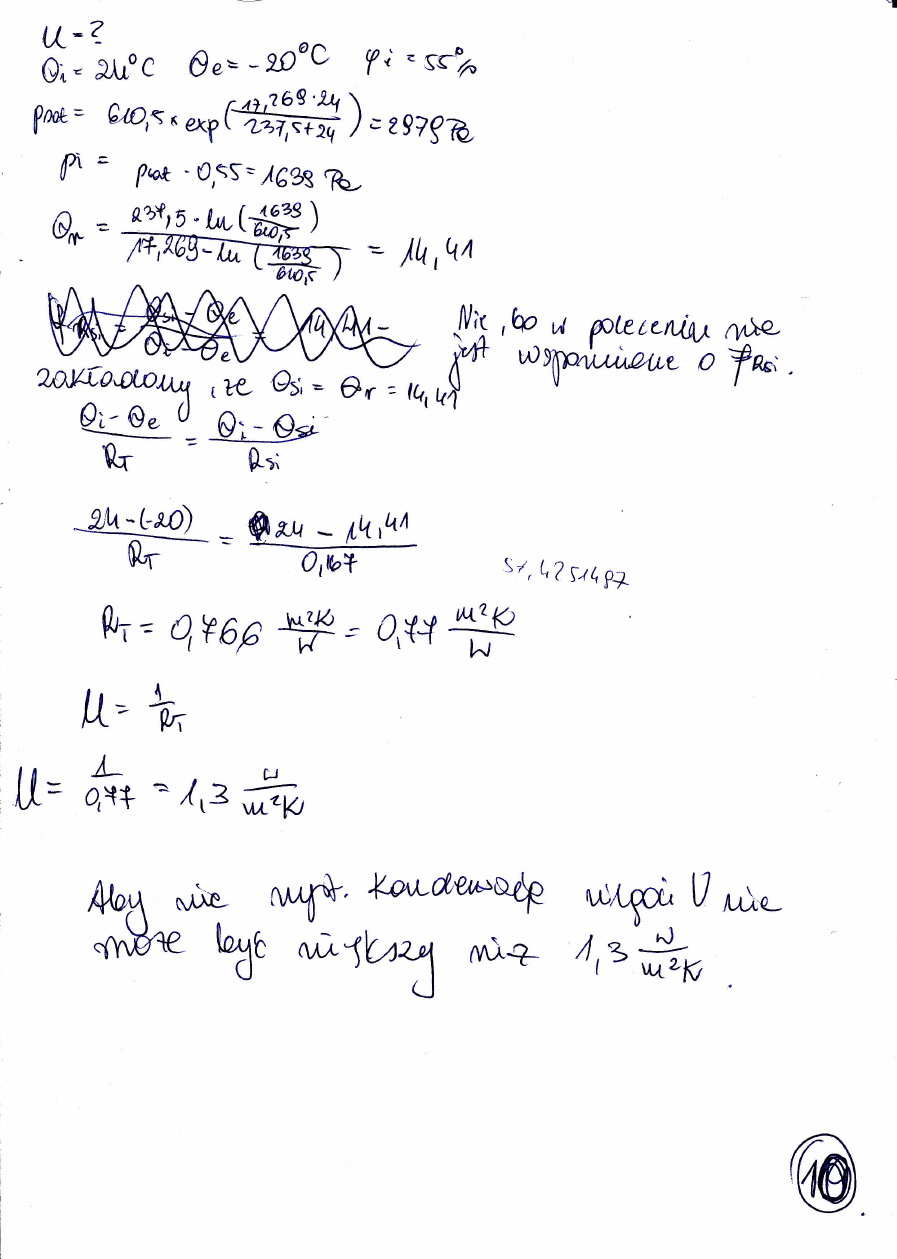 U = ?
θi = 24°C θe = -20°C φi = 55%
psat = 610,5 × exp(17,269·24 / 237,5+24) = 2979 Pa
pi = psat · 0,55 = 1639 Pa
θr = 237,5 · ln(1639/610,5) / 17,269 - ln(1639/610,5) = 14,41
Nie, bo w poleceniu nie
jest wspomniane o fRsi.
zakładamy, że θsi = θr = 14,41
θi - θe / RT = θi - θsi / Rsi
24-(-20) / RT = 24 - 14,41 / 0,167
57,4251497
RT = 0,766 m²K/W = 0,77 m²K/W
U = 1/RT
U = 1/0,77 = 1,3 W/m²K
Aby nie wyst. kondensacja wilgoci U nie
może być większy niż 1,3 W/m²K.
10